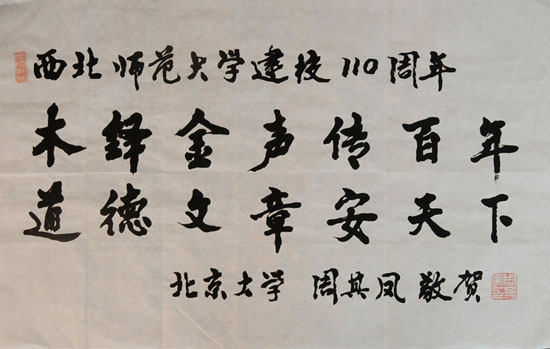 西北师范大学建校110周年
木铎金声传百年
道德文章安天下
北京大学 周其凤敬贺